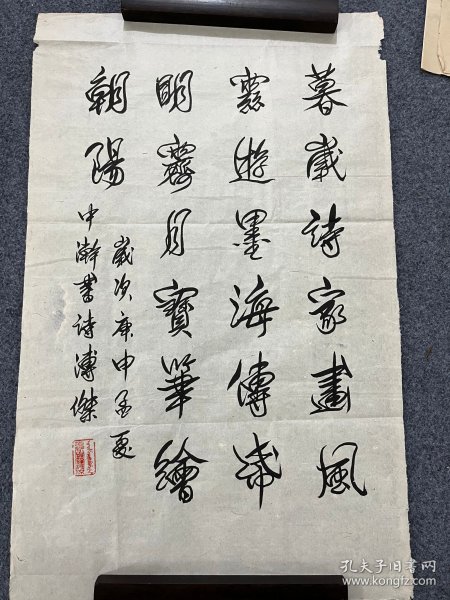 暮歲詩家畫風
靈遊墨海傳
明霽月寶筆繪
朝陽
歲次庚申孟夏
中澣書詩溥傑
孔夫子旧书网
www.kongfz.com